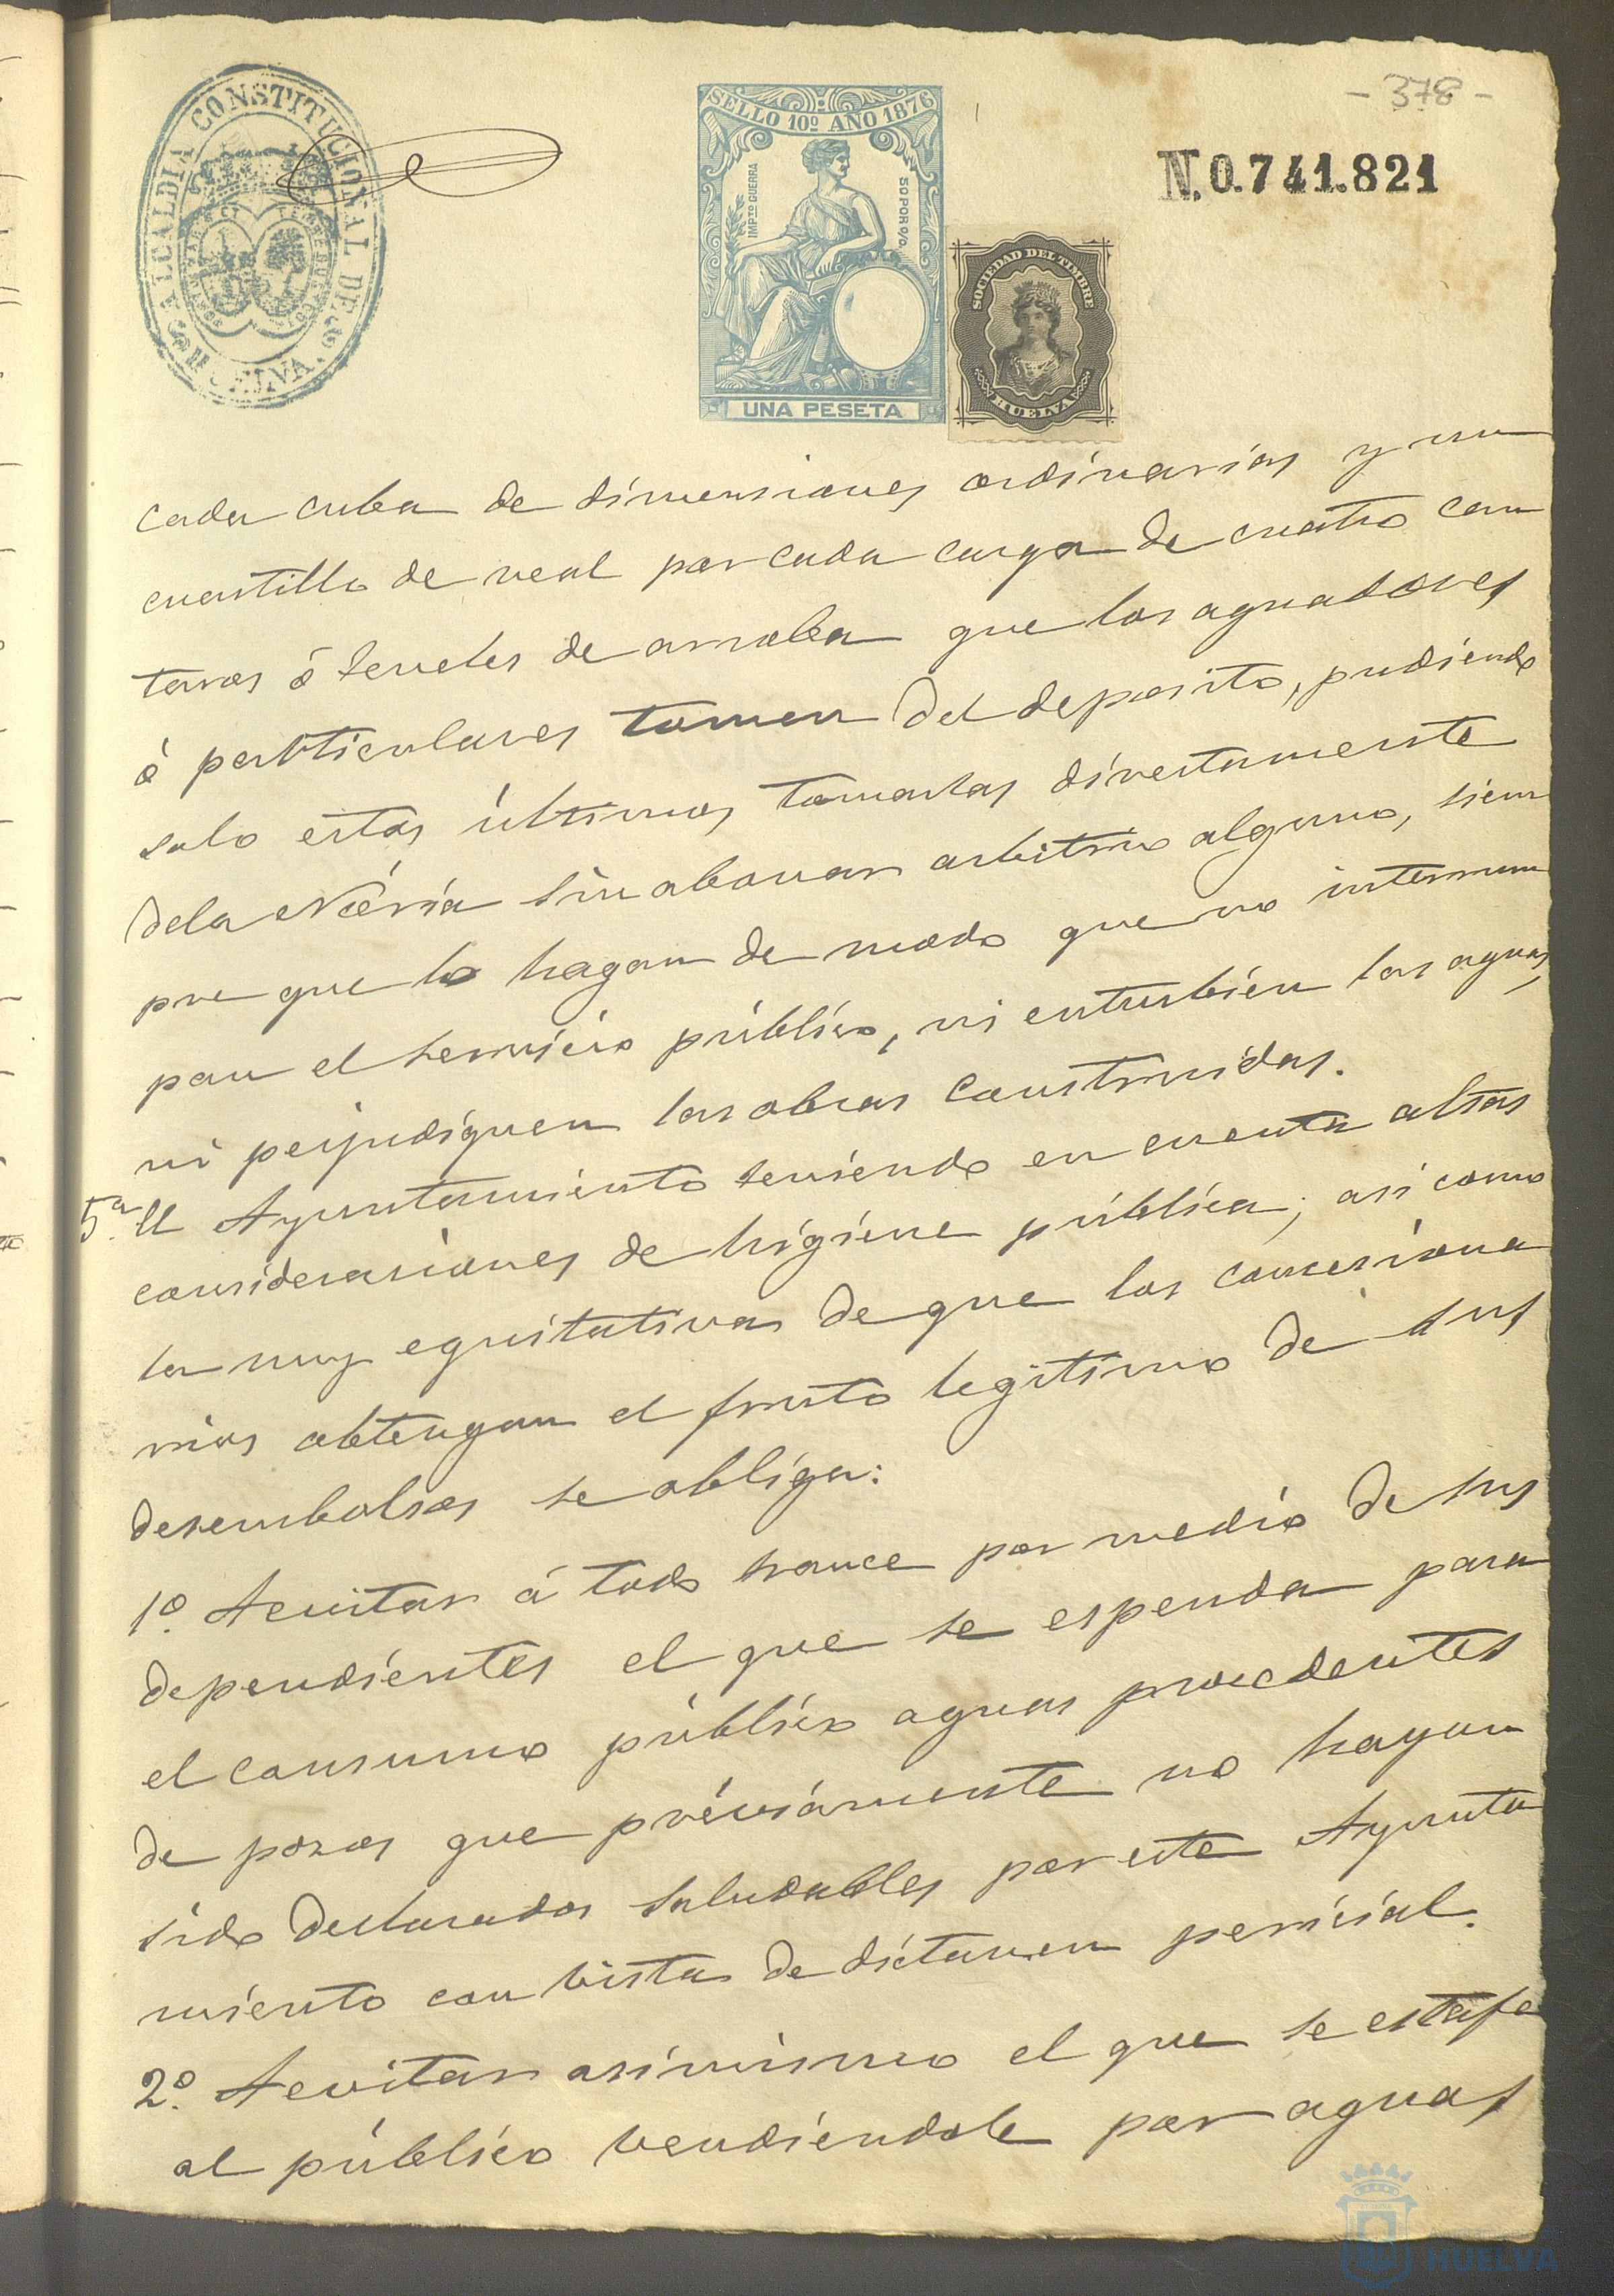 - 378 -
ALCALDIA CONSTITUCIONAL DE HUELVA
SELLO 10º AÑO 1876
IMPTO GUERRA
50 POR 0/0
UNA PESETA
SOCIEDAD DEL TIMBRE
HUELVA
N. 0.741.821
cada cuba de dimensiones ordinarias y un
cuartillo de real por cada carga de cuatro can
taros ó barriles de arroba que los aguadores
ó particulares tomen del deposito, pudiendo
solo estos últimos tomarlas directamente
dela Nória sin abonar arbitrio alguno, siem
pre que lo hagan de modo que no interrum
pan el servicio público, ni enturbien las aguas,
ni perjudiquen las obras construidas.
5ª. El Ayuntamiento teniendo en cuenta altas
consideraciones de higiene pública, asi como
la muy equitativa de que los concesiona
rios obtengan el fruto legitimo de sus
desembolsos se obliga:
1º. A evitar á todo trance por medio de sus
dependientes el que se espenda para
el consumo público aguas procedentes
de pozos que préviamente no hayan
sido declarados saludables por este Ayunta
miento con vista de dictamen pericial.
2º. A evitar asimismo el que se estafe
al público vendiendole por aguas
HUELVA